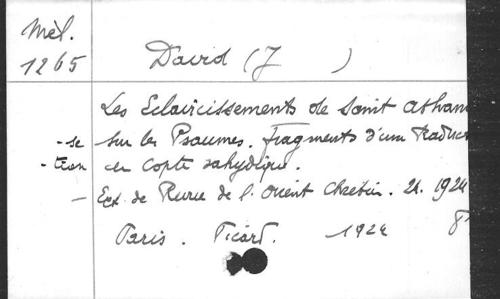 Mèl.
1265
David (J )
Les Eclaircissements de Saint Athana
-se sur les Psaumes. Fragments d'une traduct
-tion en Copte sahydique.
— Ext. de Revue de l'Orient Chrétien. 24. 1924
Paris. Picard. 1924 8°